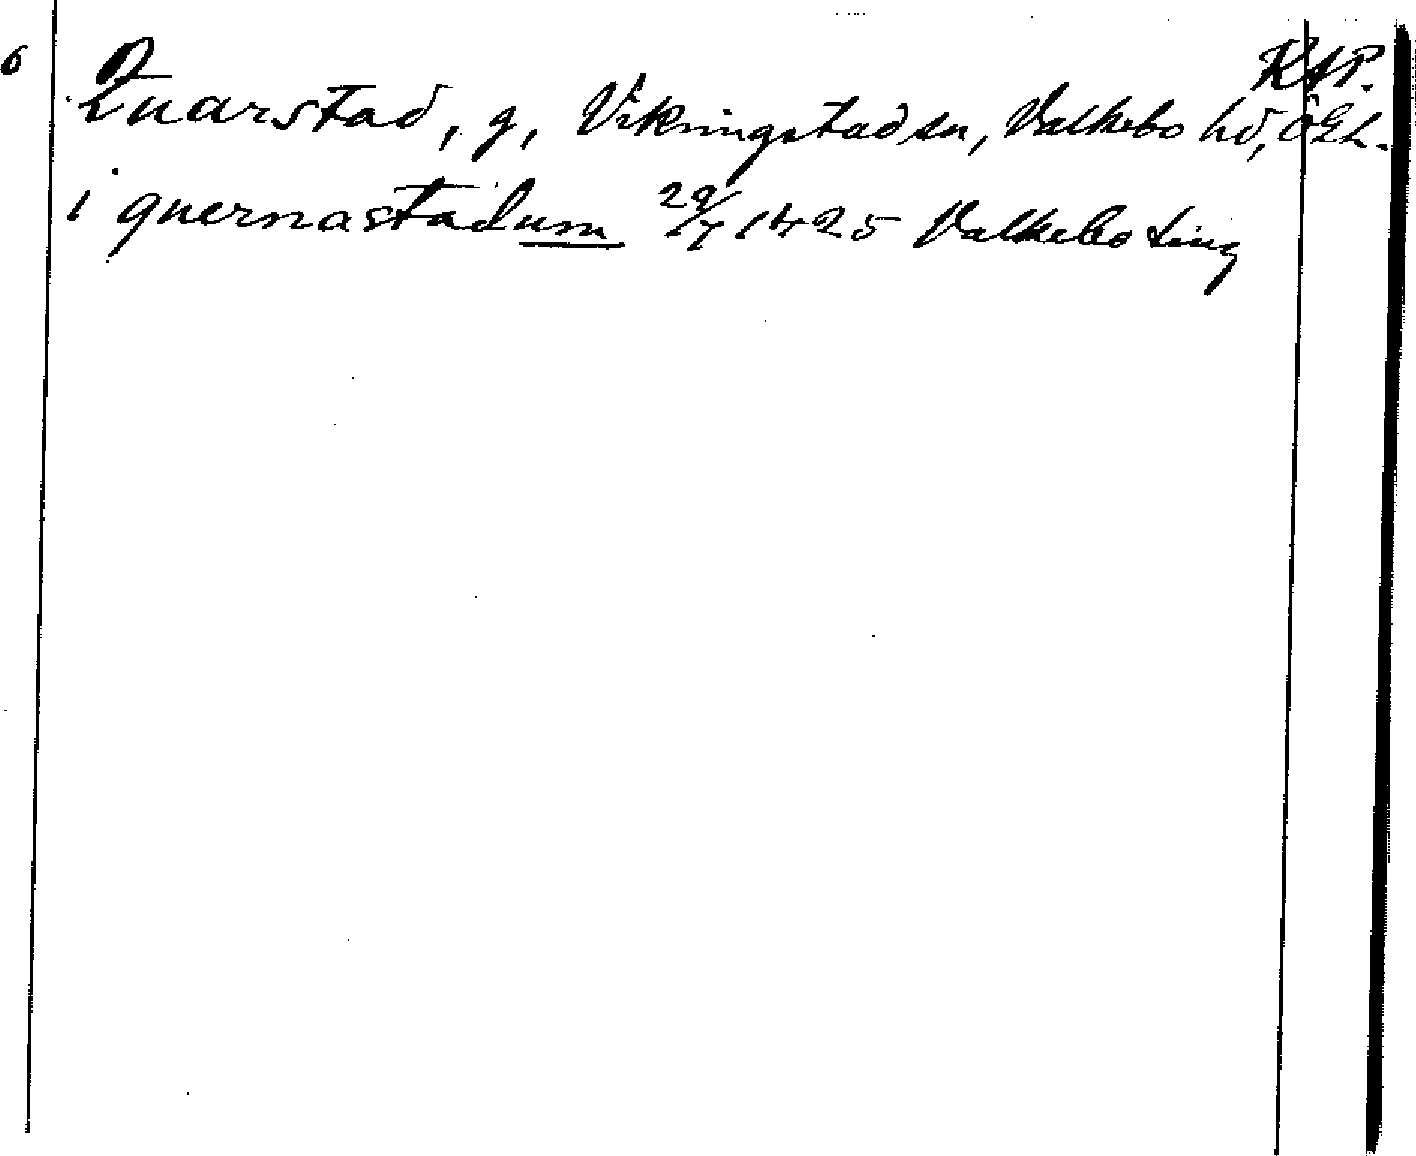 6
KHP.
Quarstad, g, Vikingstad sn, Valkebo hd, ÖGL.
i quernastadum 29/7 1425 Valkebo ting